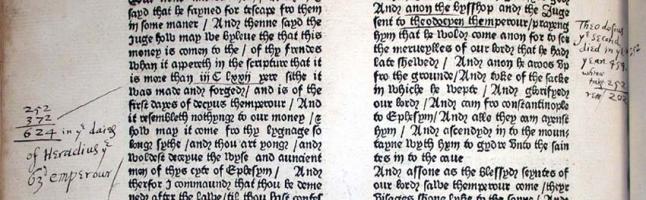 sayd that he fayned for tescape fro them
in some maner / And thenne sayd the
Juge how may we byleue the that this
money is comen to the / of thy frendes
whan it appereth in the scripture that it
is more than iii C lxxii yere sithe it
was made and forged / and is of the
first dayes of decyus themperour / And
it resembleth nothyng to our money / &
how may it come fro thy lygnage so
longe sythe / and thou art yong / and
woldest deceyue the wyse and auncient
men of thys cyte of Ephesym / And
therfor I commaunde that thou be deme
ned after the lawe / til thou hast confes
252
372
624 in yᵉ daies
of Heraclius yᵉ
63 emperour /
And anon the bysshop and the Juge
sent to theodocyen themperour / prayeng
hym that he wolde come anon for to see
the merueylles of our lord that he had
late shewed / And anon he aroos vp
fro the ground / and toke of the sacke
in whiche he wepte / And gloryfyed
our lord / And cam fro constantinople
to Ephesym / And alle they cam ayenst
hym / And ascendyd in to the moun-
tayne wyth hym to gydre vnto the sain
tes in to the caue
And assone as the blessyd seyntes of
our lord sawe themperour come / theyr
visages shone lyke to the sonne
Theodosius
yᵉ second
died in yᵉ
year 45
take 252
rest 202